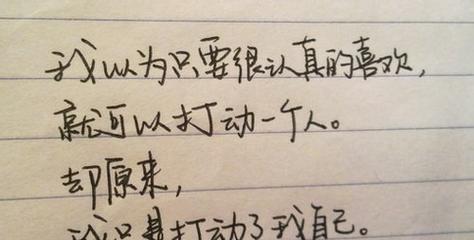 我以为只要很认真的喜欢，
就可以打动一个人。
却原来，
我只是打动了我自己。